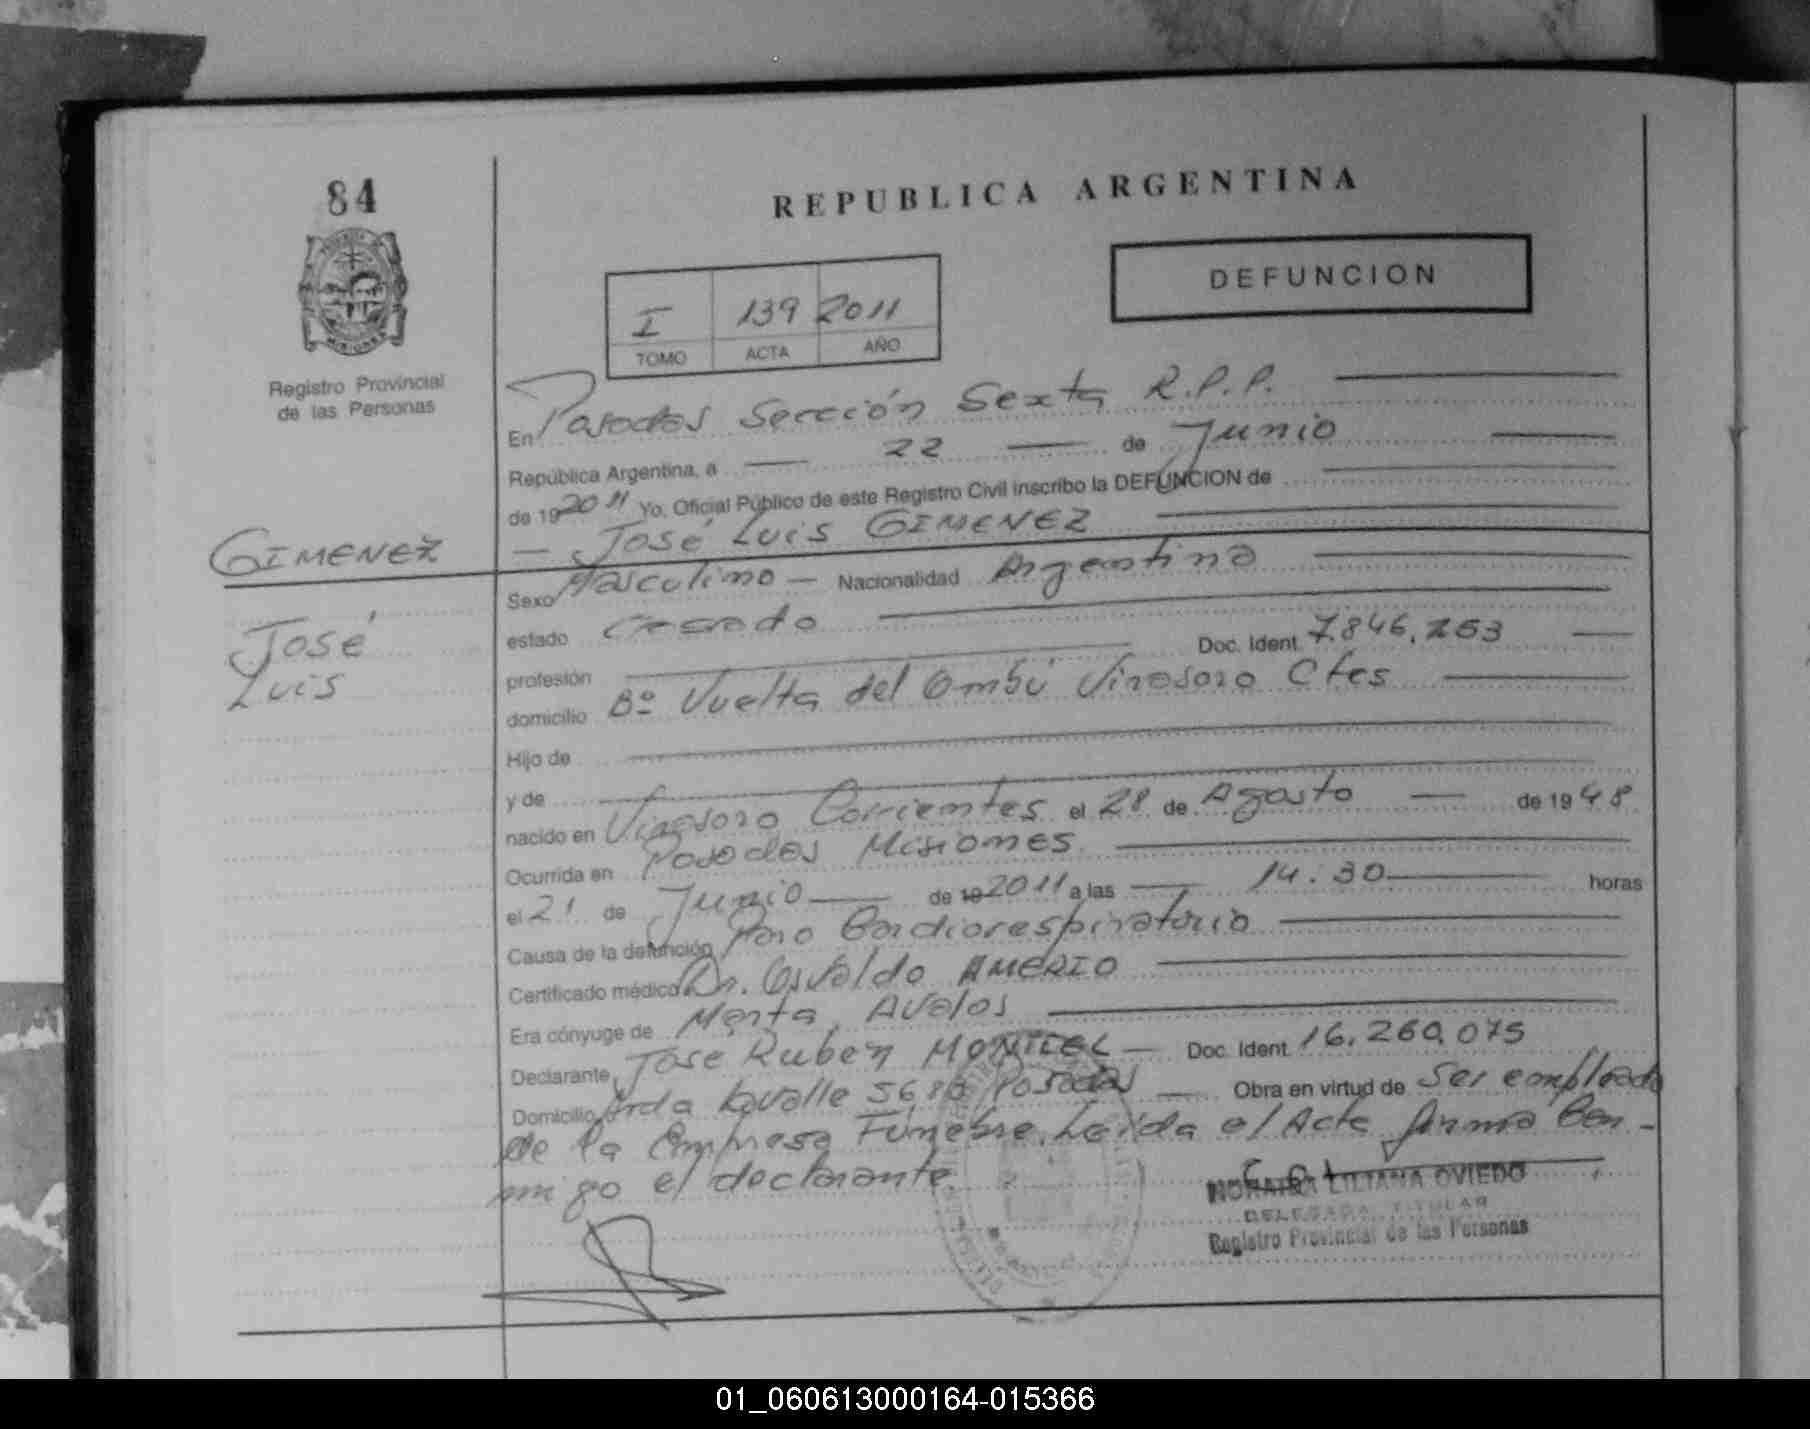 84
REPUBLICA ARGENTINA
DEFUNCION
I 139 2011
TOMO ACTA AÑO
Registro Provincial
de las Personas
En Posadas Sección Sexta R.P.P.
República Argentina, a 22 de Junio
de 19 2011 Yo, Oficial Público de este Registro Civil inscribo la DEFUNCION de
José Luis GIMENEZ
GIMENEZ
José
Luis
Sexo Masculino — Nacionalidad Argentina
estado Casado
Doc. Ident. 7.846.253
profesión
domicilio Bº Vuelta del Ombú Virasoro Ctes
Hijo de
y de
nacido en Virasoro Corrientes el 28 de Agosto — de 1948
Ocurrida en Posadas Misiones
el 21 de Junio — de 19 2011 a las — 14:30 horas
Causa de la defunción Paro Cardiorespiratorio
Certificado médico Dr. Osvaldo AMERIO
Era cónyuge de Marta Avalos
Declarante José Ruben MONTIEL — Doc. Ident. 16.260.075
Domicilio Avda Lavalle Posadas — Obra en virtud de Ser empleado
de la Empresa Fúnebre. Leída el Acta firma Con-
migo el declarante
LILIANA OVIEDO
DELEGADA TITULAR
Registro Provincial de las Personas
01_060613000164-015366